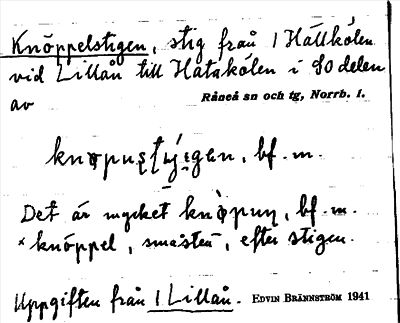 Knöppelstigen, stig från 1 Hällkölen
vid Lillån till Hatakölen i SO delen
av
Råneå sn och tg, Norrb. l.
bf. m.
Det är mycket bf. m.
*knöppel, småsten, efter stigen.
Uppgiften från 1 Lillån. EDVIN BRÄNNSTRÖM 1941